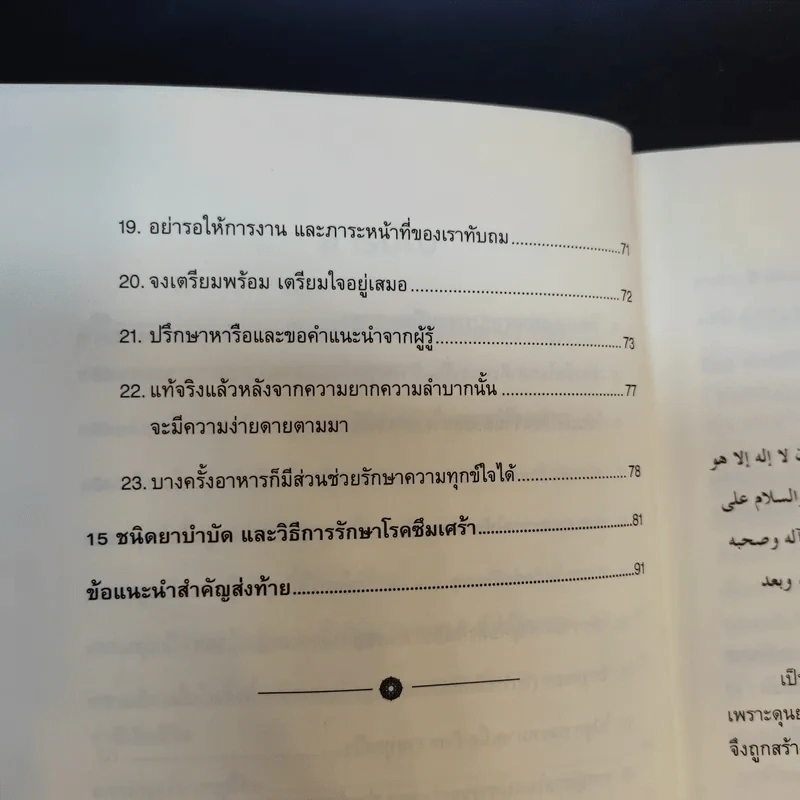 19. อย่ารอให้การงาน และภาระหน้าที่ของเราทับถม....................71
20. จงเตรียมพร้อม เตรียมใจอยู่เสมอ........................................72
21. ปรึกษาหารือและขอคำแนะนำจากผู้รู้...................................73
22. แท้จริงแล้วหลังจากความยากความลำบากนั้น.........................77
จะมีความง่ายดายตามมา
23. บางครั้งอาหารก็มีส่วนช่วยรักษาความทุกข์ใจได้......................78
15 ชนิดยาบำบัด และวิธีการรักษาโรคซึมเศร้า.............................81
ข้อแนะนำสำคัญส่งท้าย..............................................................91
لا إله إلا هو
والسلام على
آله وصحبه
وبعد
เพราะดุนย
จึงถูกสร้า